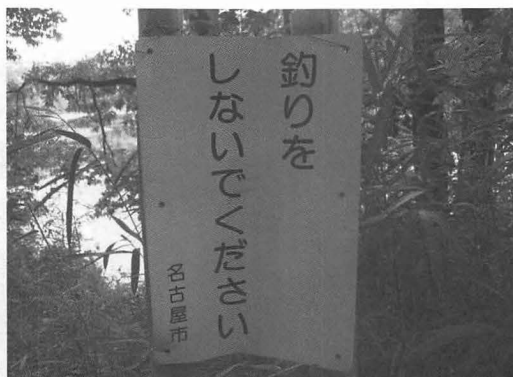 釣りを
しないでください
名古屋市